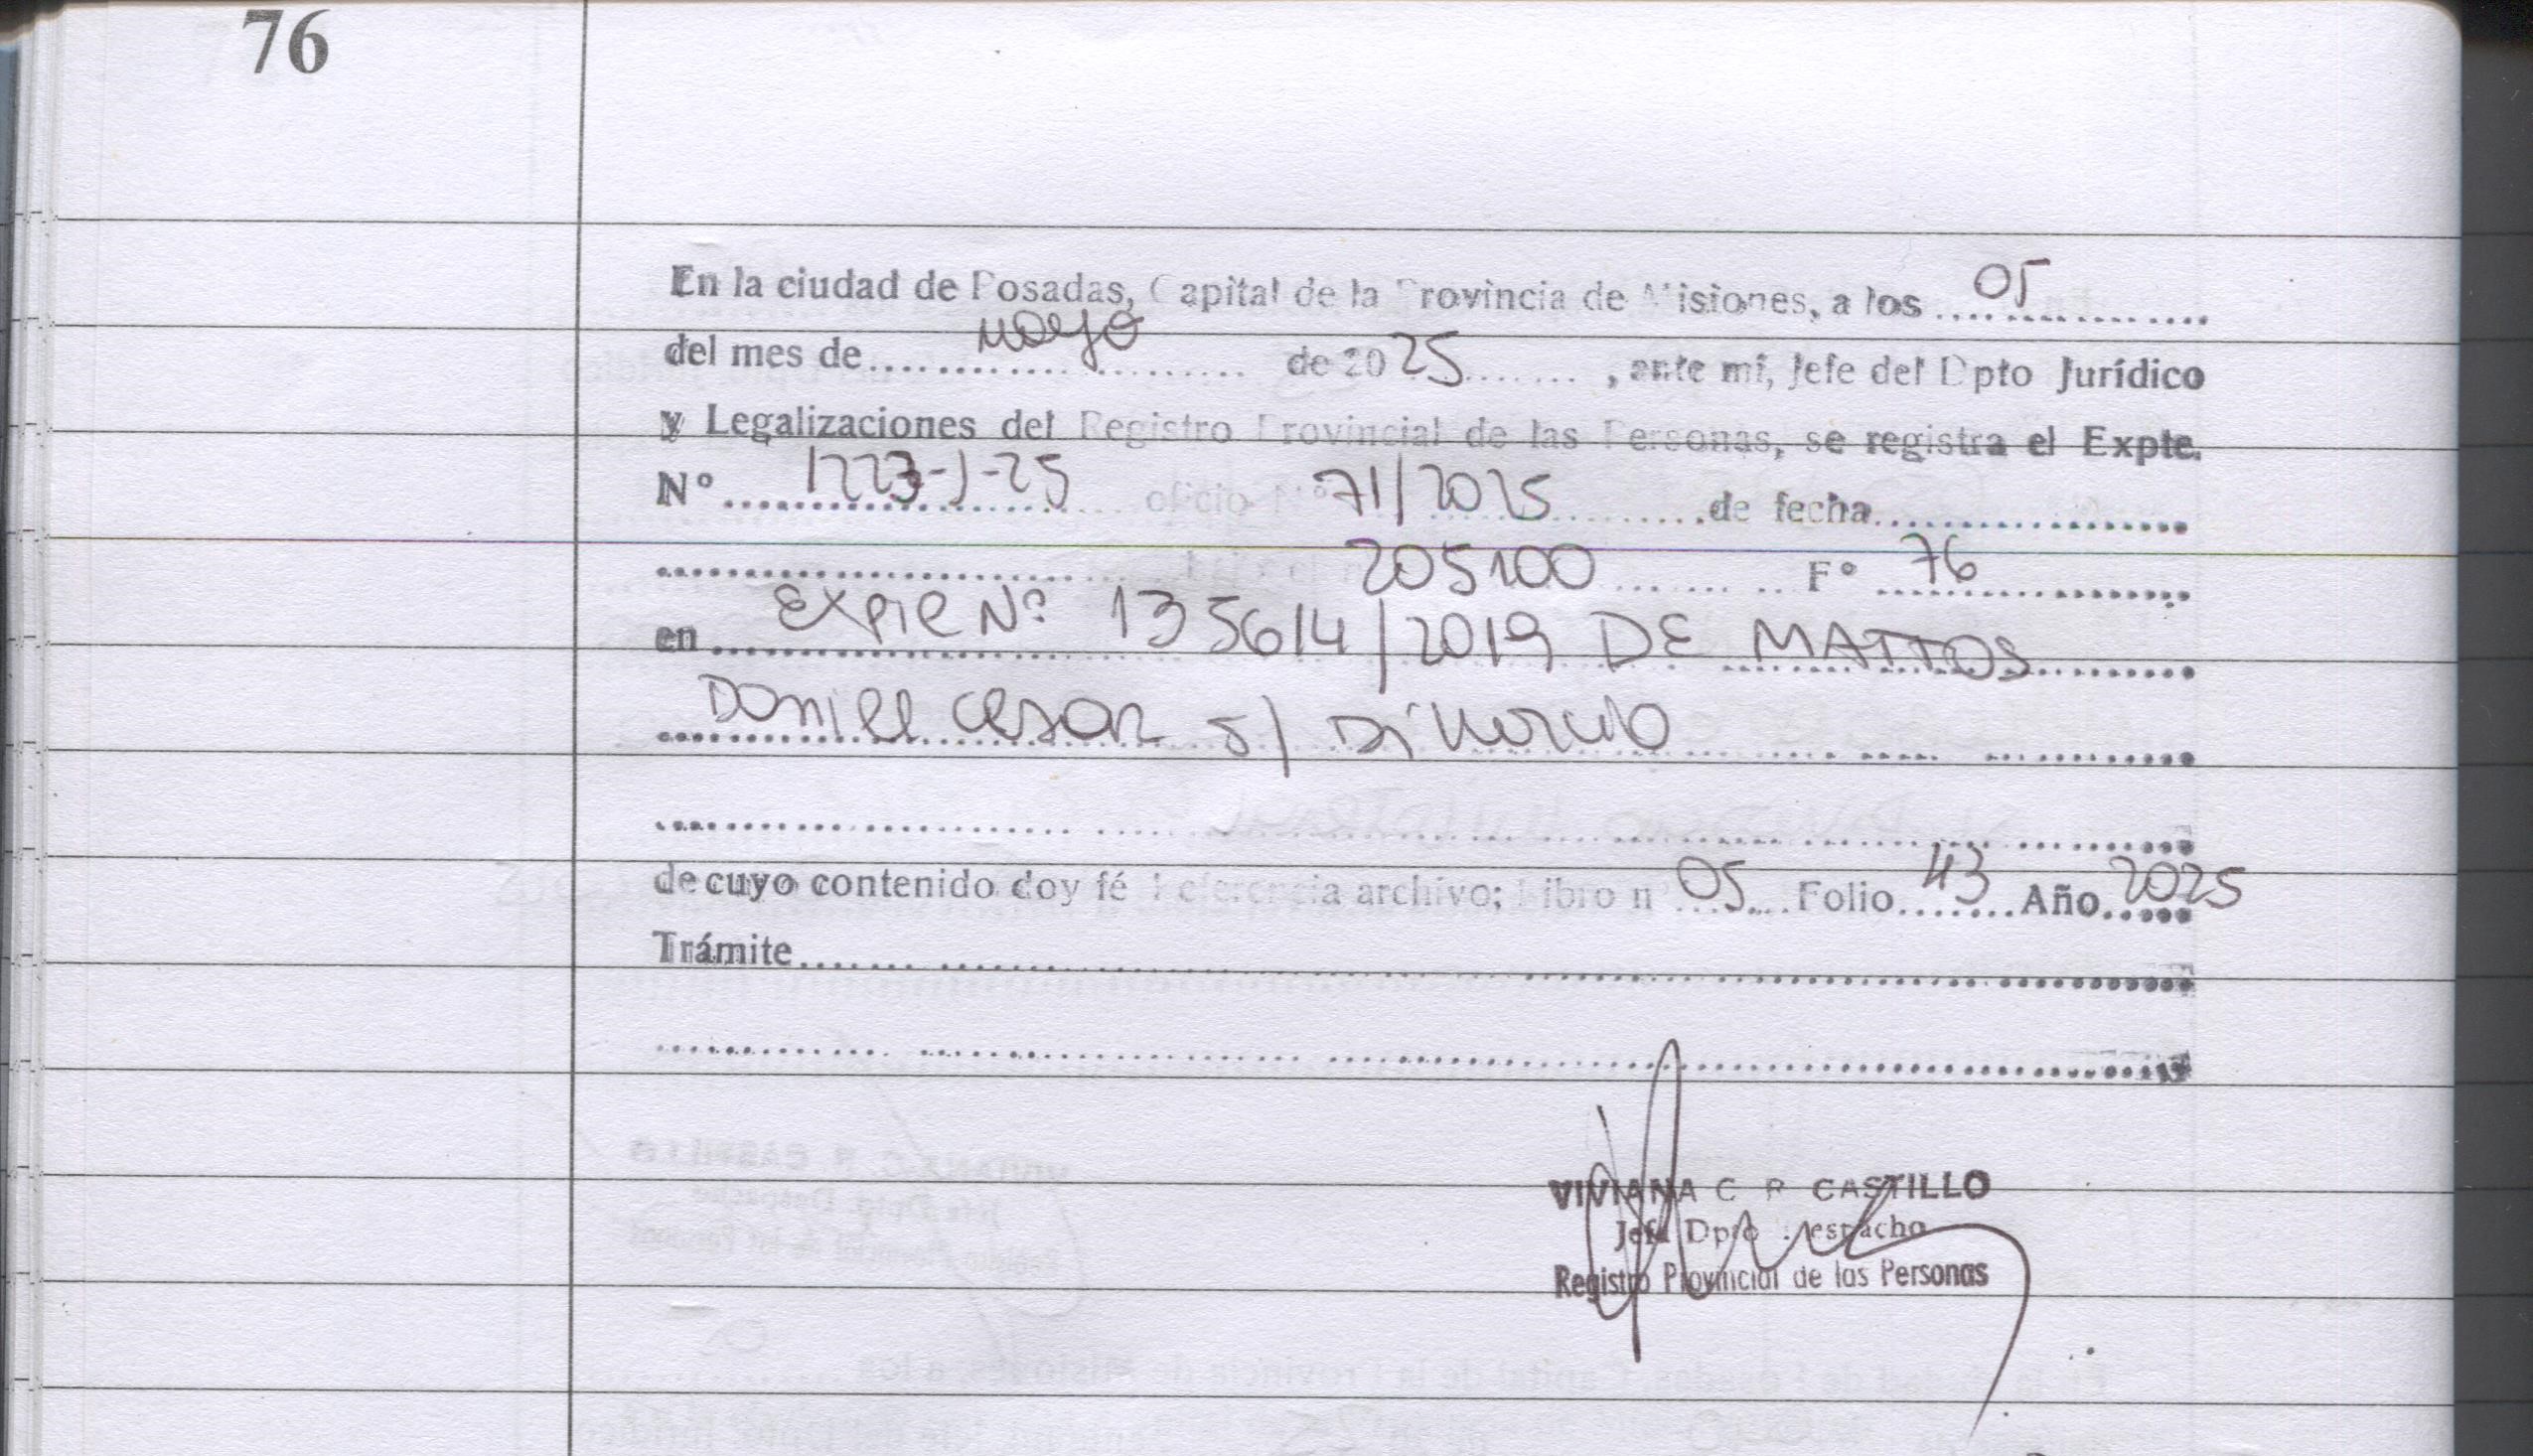 76
En la ciudad de Posadas, Capital de la Provincia de Misiones, a los 05
del mes de mayo de 2025, ante mí, Jefe del Dpto Jurídico
y Legalizaciones del Registro Provincial de las Personas, se registra el Expte.
Nº 1223-J-25 oficio Nº 71/2025 de fecha
205100 Fº 76
en Expte Nº 135614/2019 DE MATTOS
Daniel Cesar s/ Divorcio
de cuyo contenido doy fé Referencia archivo; Libro nº 05 Folio 43 Año 2025
Trámite
VIVIANA C R CASTILLO
Jefa Dpto Despacho
Registro Provincial de las Personas